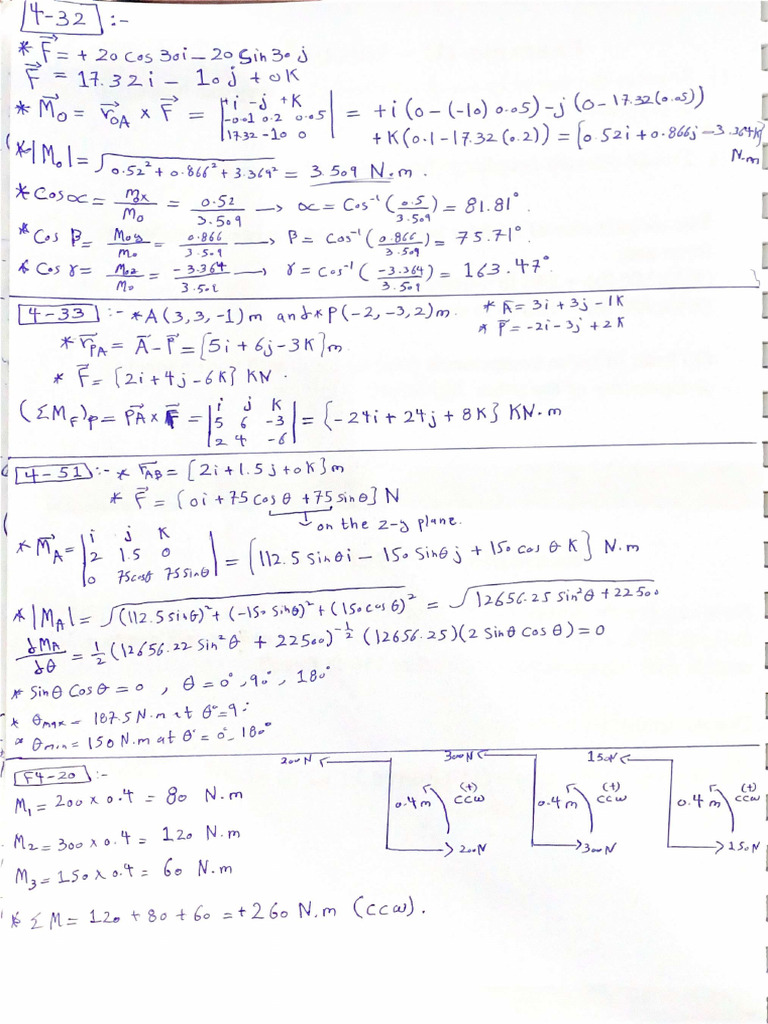 4-32 :-
* F = + 20 cos 30i - 20 Sin 30 j
F = 17.32 i - 10 j + 0K
* Mo = roA x F = | +i -j +K | = +i (0 - (-10) 0.05) - j (0 - 17.32 (0.05))
-0.01 0.2 0.05
17.32 -10 0
+ K (0.1 - 17.32 (0.2)) = [0.52i + 0.866j - 3.364K] N.m
* |Mo| = √0.52² + 0.866² + 3.369² = 3.509 N.m.
* Cos α = Mx/Mo = 0.52/3.509 → α = Cos⁻¹ (0.5/3.509) = 81.81°
* Cos β = Moy/Mo = 0.866/3.509 → β = cos⁻¹ (0.866/3.509) = 75.71°.
* Cos γ = Moz/Mo = -3.364/3.501 → γ = cos⁻¹ (-3.364/3.509) = 163.47°
4-33 :- * A (3, 3, -1) m and * P (-2, -3, 2) m. * A = 3i + 3j - 1K
* P = -2i - 3j + 2K
* rPA = A - P = [5i + 6j - 3K] m
* F = {2i + 4j - 6K} KN.
(ΣMF)p = PA x F = | i j K | = {-24i + 24j + 8K} KN.m
5 6 -3
2 4 -6
4-51 :- * rAB = [2i + 1.5j + 0K] m
* F = [0i + 75 cos θ + 75 sin θ] N
on the z-y plane.
* MA = | i j K | = [112.5 Sin θi - 150 Sin θj + 150 cos θ K} N.m
2 1.5 0
0 75cosθ 75Sinθ
* |MA| = √(112.5 sinθ)² + (-150 Sinθ)² + (150 cos θ)² = √12656.25 sin²θ + 22500
dMA/dθ = 1/2 (12656.22 Sin²θ + 22500)^-1/2 (12656.25) (2 Sinθ Cosθ) = 0
* Sinθ Cosθ = 0 , θ = 0°, 90°, 180°
* θmax = 187.5 N.m at θ° = 90
* θmin = 150 N.m at θ° = 0°, 180°
F4-20 :-
200N 300N 150N
M1 = 200 x 0.4 = 80 N.m
0.4 m (+) CCW 0.4 m (+) CCW 0.4 m (+) CCW
M2 = 300 x 0.4 = 120 N.m
200N 300N 150N
M3 = 150 x 0.4 = 60 N.m
* ΣM = 120 + 80 + 60 = +260 N.m (CCW).